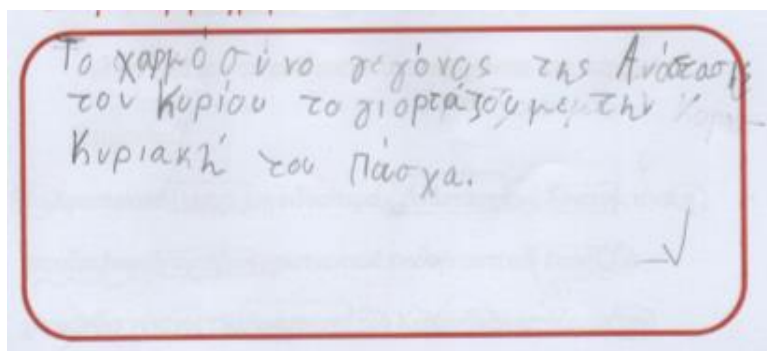 Το χαρμόσύνο γεγόνος της Ανάστασης
τον Κυρίου το γιορτάζουμε την
Κυριακή του Πάσχα.